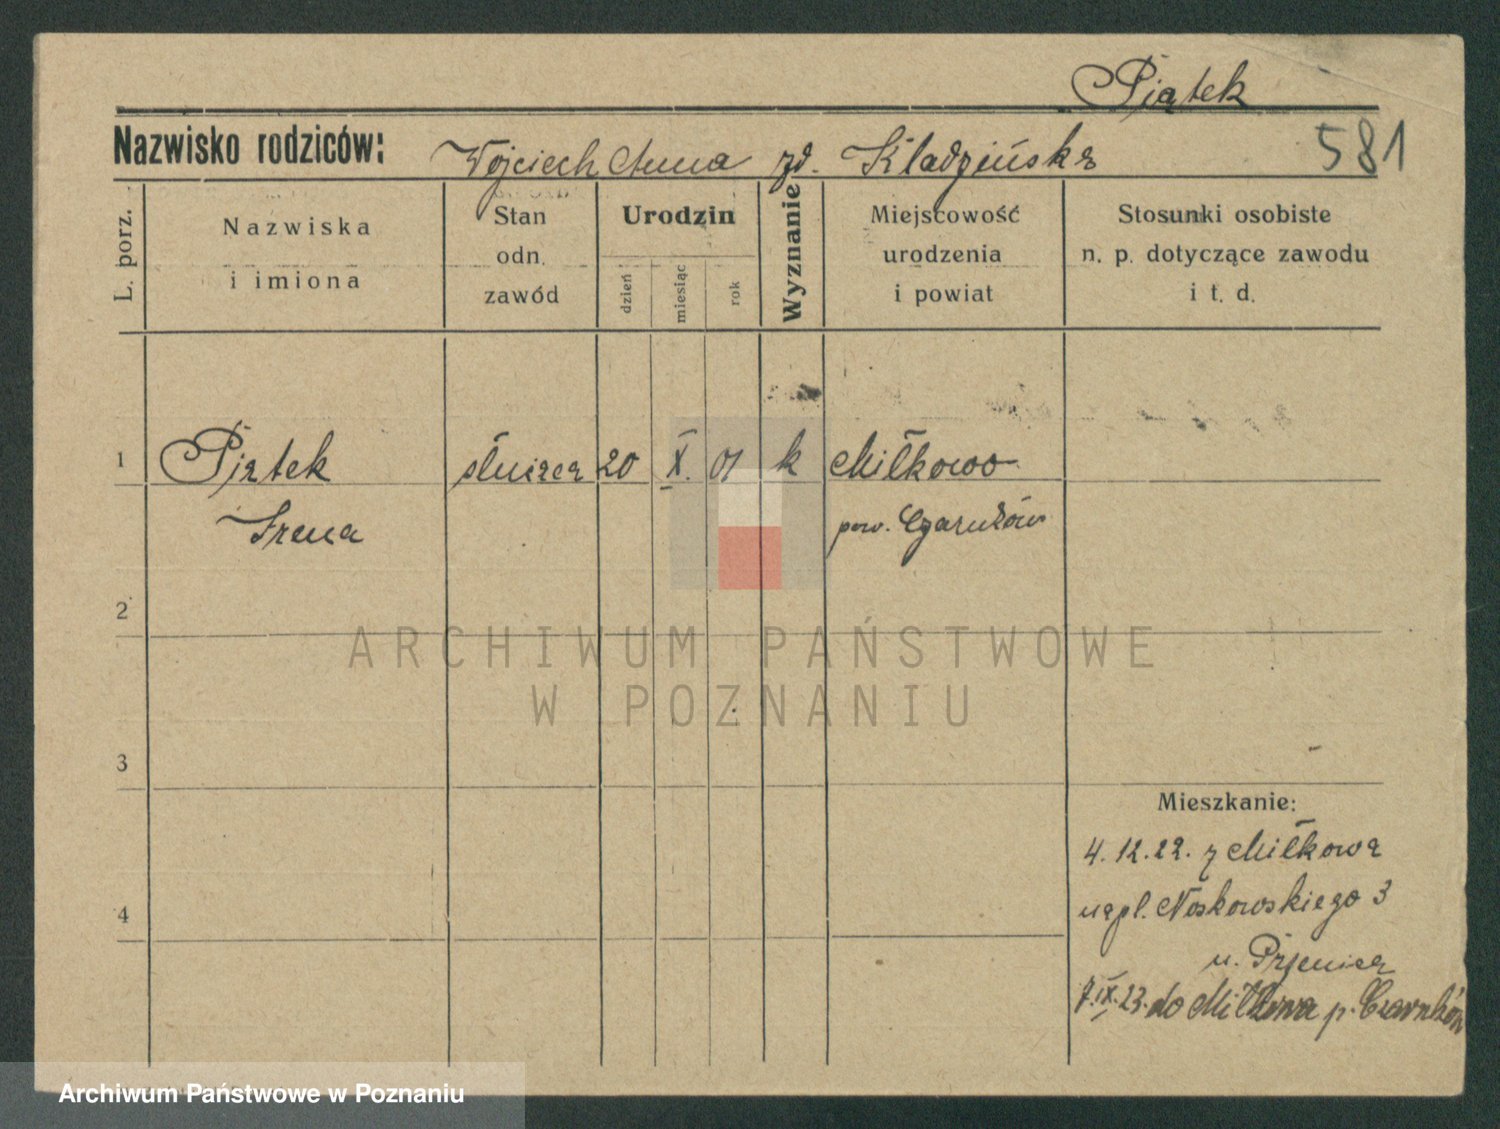 Piątek
Nazwisko rodziców: Wojciech Anna zd. Kladzińska 581
L. porz.
Nazwiska
i imiona
Stan
odn.
zawód
Urodzin
dzień
miesiąc
rok
Wyznanie
Miejscowość
urodzenia
i powiat
Stosunki osobiste
n. p. dotyczące zawodu
i t. d.
1 Piątek służąca 20 X. 01 k Miłkowo
Irena pow. Czarnków
2
ARCHIWUM PAŃSTWOWE
W POZNANIU
3
Mieszkanie:
4. 12. 22. z Miłkowa
4
na pl. Noskowskiego 3
u.
7.IX.23. do Miłkowa p. Czarnków
Archiwum Państwowe w Poznaniu